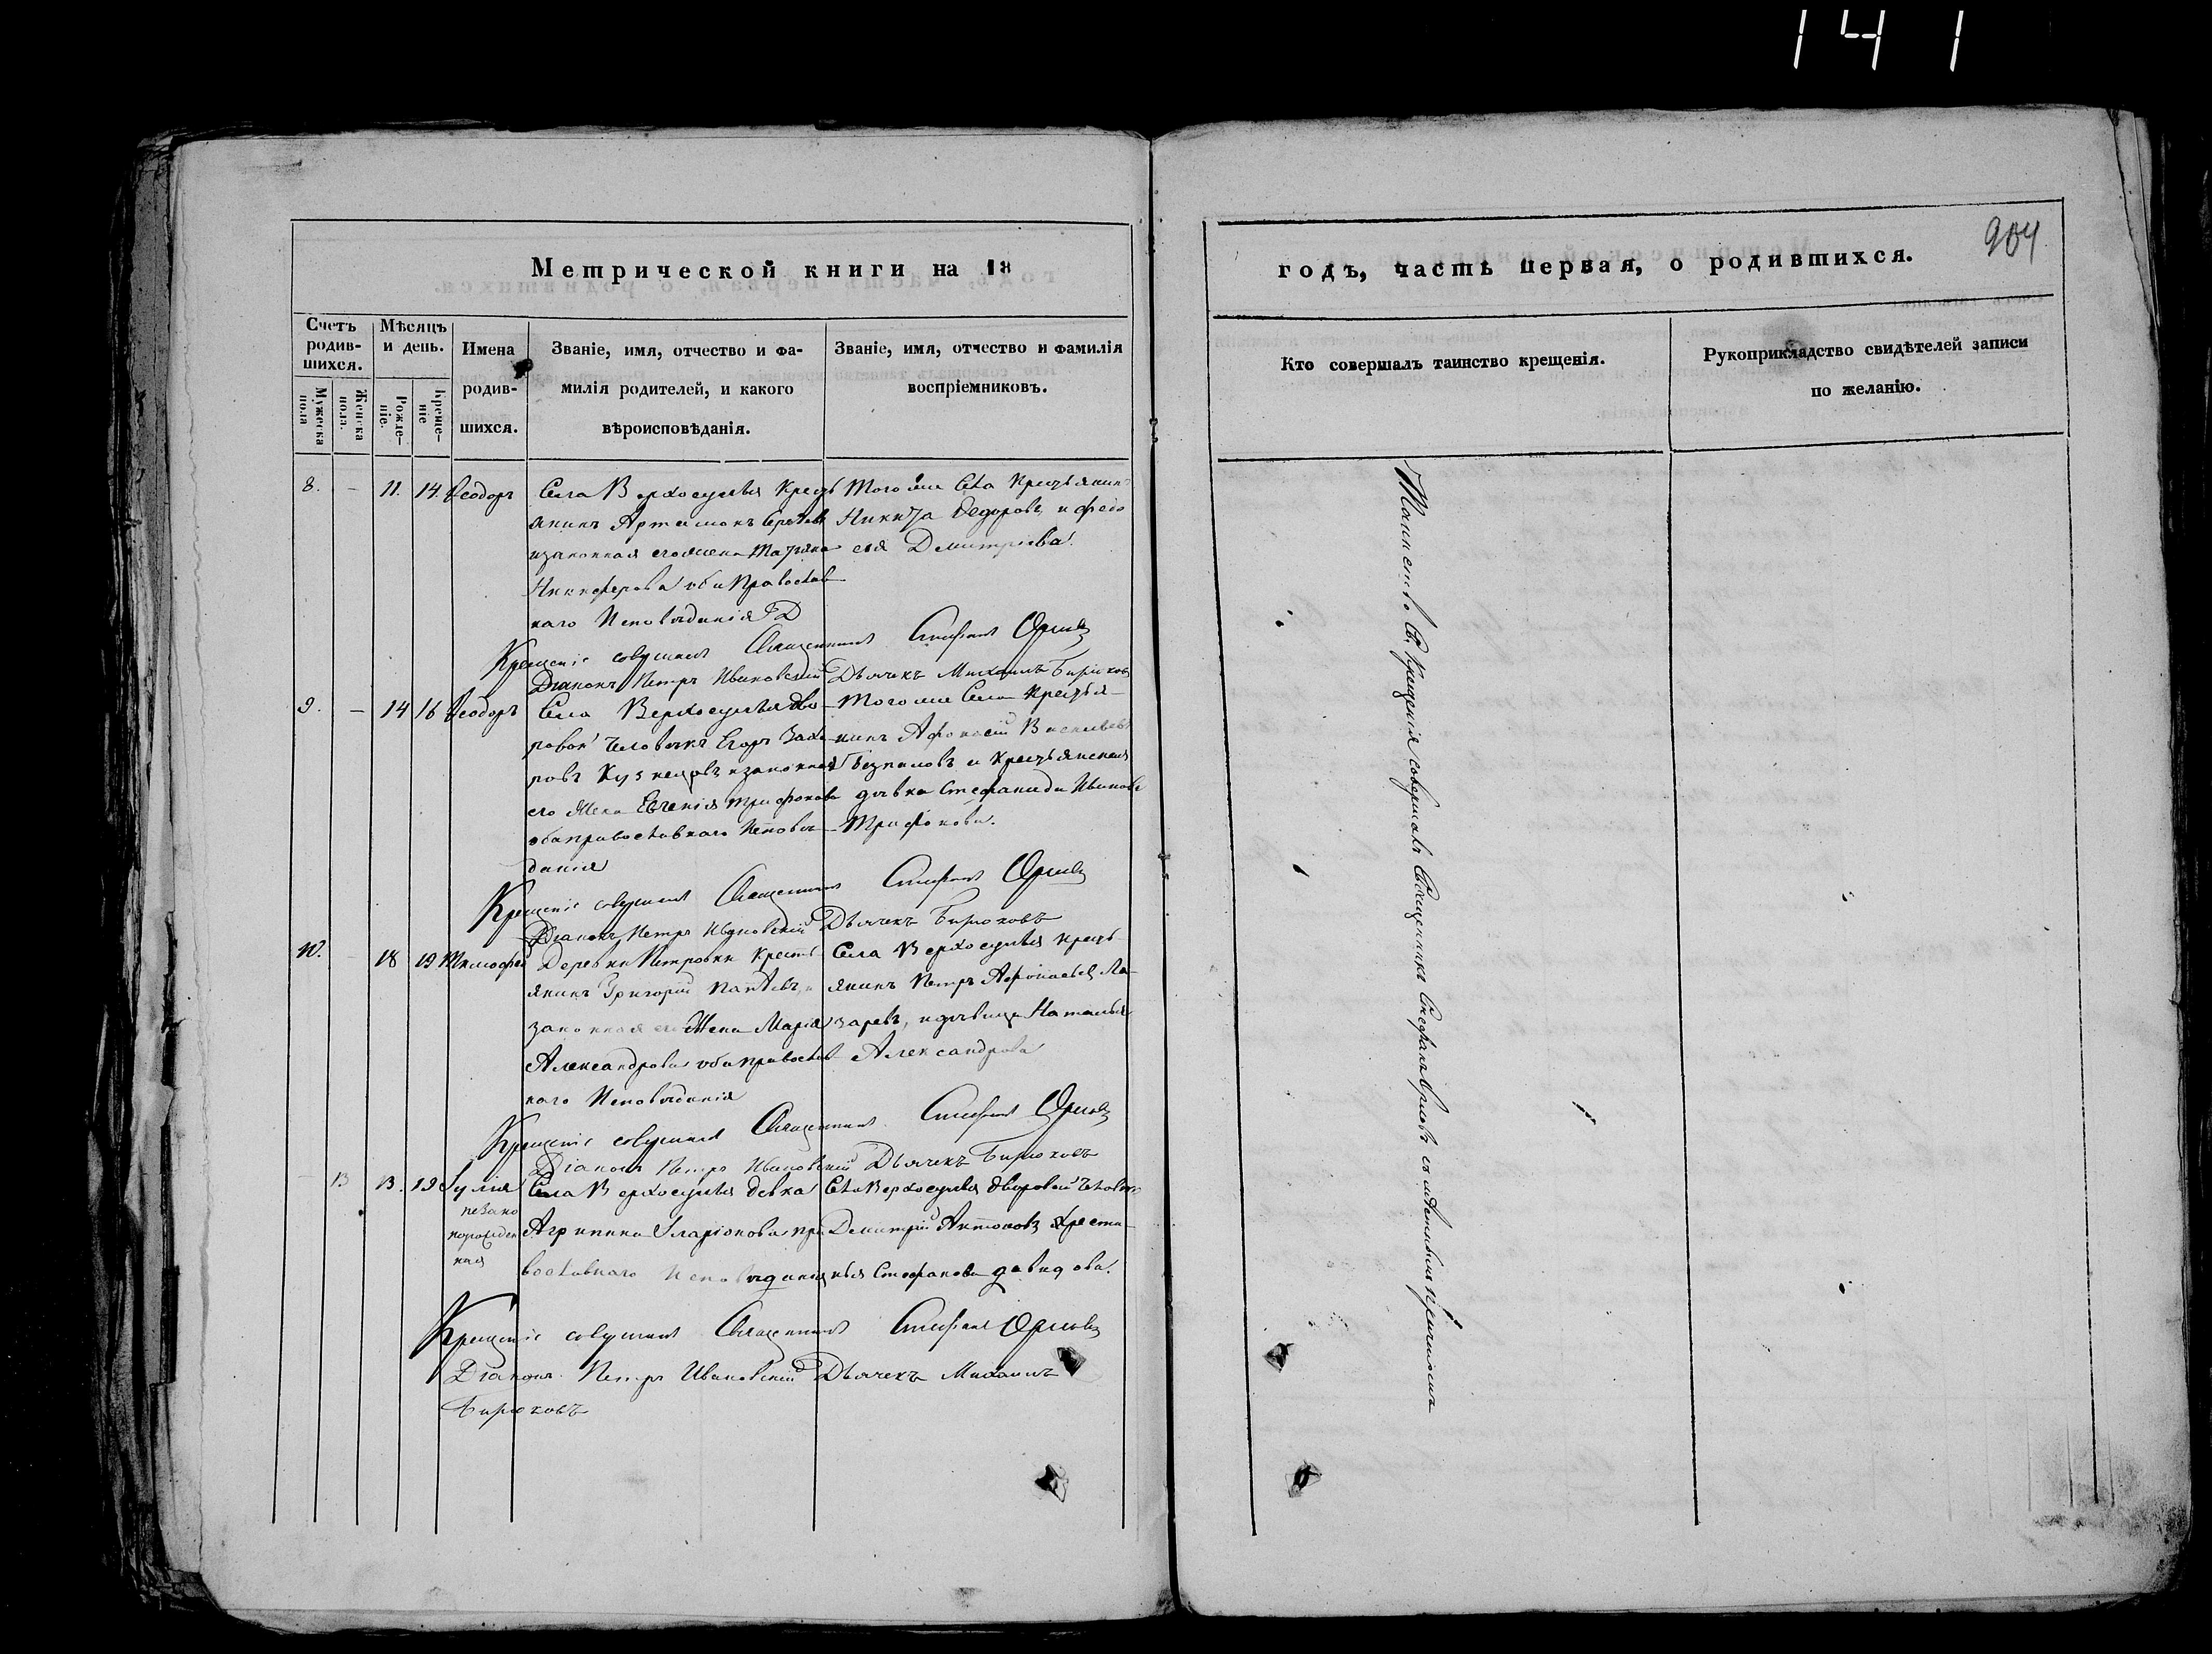 141
904
Метрической книги на 18
годъ, часть первая, о родившихся.
Счетъ родив-шихся.
Мужеска пола
Женска пола.
Мѣсяцъ и день.
Рожде-ніе.
Креще-ніе
Имена родив-шихся.
Званіе, имя, отчество и фа-
милія родителей, и какого
вѣроисповѣданія.
Званіе, имя, отчество и фамилія
воспріемниковъ.
Кто совершалъ таинство крещенія.
Рукоприкладство свидѣтелей записи
по желанію.
8. - 11. 14. Ѳеодоръ
Села Верхосулья Кресть
янинъ Артамонъ
изаконная его жена Татіана
Никиферова оба Православ
наго Исповѣданія
Того же Села Крестьянинъ
Никита Федоровъ и Федо
сія Димитріева.
Крещеніе совершилъ Священникъ Стефанъ Орловъ
Діаконъ Петръ Ивановскій Дьячекъ Михаилъ Бирюковъ
9. - 14 16 Ѳеодоръ
Села Верхосулья дво-
ровой Человѣкъ Егоръ Заха
ровъ Кузнецовъ изаконная
его Жена Евгенія Трифонова
оба православнаго Исповѣ-
данія
Того же Села Крестья-
нинъ Афонасій Васильевъ
и Крестьянская
дѣвка Стефанида Иванова
Трифонова.
Крещеніе совершилъ Священникъ Стефанъ Орловъ
Діаконъ Петръ Ивановскій Дьячекъ Бирюковъ
10. - 18 19 Тимофей
Деревни Петровки Кресть
янинъ Григорій
законная его Жена Марія
Александрова оба православ
наго Исповѣданія
Села Верхосулья кресть
янинъ Петръ Афонасьевъ Ла-
заревъ, и дѣвица Наталья
Александрова
Крещеніе совершилъ Священникъ Стефанъ Орловъ
Діаконъ Петръ Ивановскій Дьячекъ Бирюковъ
- 13 13. 19 Іулія
незако
норожден
ная
Села Верхосулья девка
Агрипина Иларіонова пра
вославнаго Исповѣданія
Села Верхосулья дворовой Человѣкъ
Димитрій Антоновъ Крестья-
Стефанова давидова.
Крещеніе совершилъ Священникъ Стефанъ Орловъ
Діаконъ Петръ Ивановскій Дьячекъ Михаилъ
Бирюковъ
Таинство Св. Крещенія совершалъ Священникъ Стефанъ Орловъ съ причтомъ